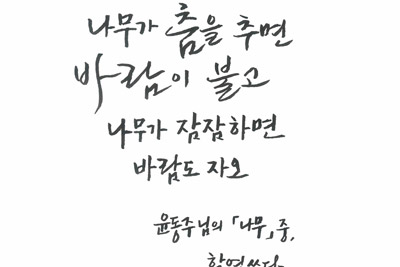 나무가 춤을 추면
바람이 불고
나무가 잠잠하면
바람도 자오
윤동주님의 「나무」중,